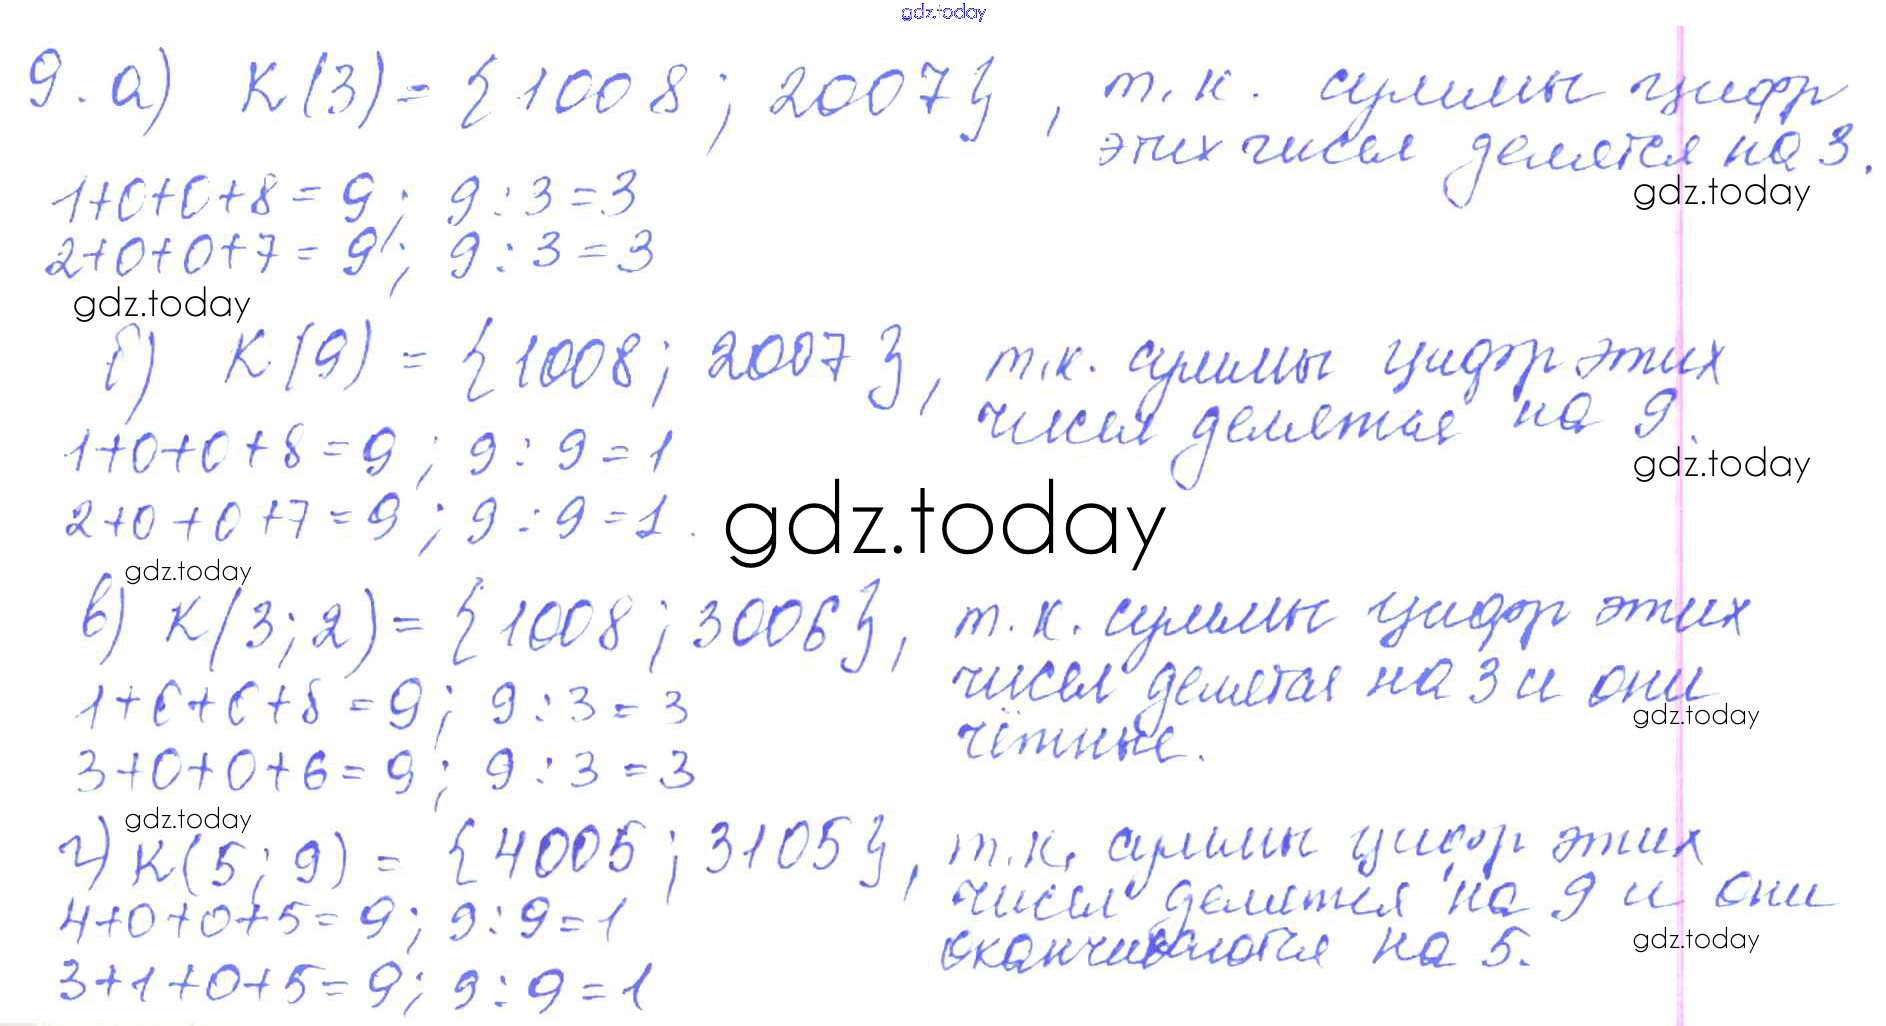 gdz.today
9. а) К(3) = {1008; 2007}, т.к. суммы цифр
этих чисел делятся на 3.
gdz.today
1+0+0+8 = 9; 9:3=3
2+0+0+7 = 9; 9:3=3
gdz.today
б) К(9) = {1008; 2007}, т.к. суммы цифр этих
чисел делятся на 9.
gdz.today
1+0+0+8=9; 9:9=1
2+0+0+7=9; 9:9=1.
gdz.today
gdz.today
в) К(3;2)= {1008; 3006}, т.к. суммы цифр этих
чисел делятся на 3 и они
gdz.today
чётные.
1+0+0+8=9; 9:3=3
3+0+0+6=9; 9:3=3
gdz.today
г) К(5;9) = {4005; 3105}, т.к. суммы цифр этих
чисел делятся на 9 и они
оканчиваются на 5.
gdz.today
4+0+0+5=9; 9:9=1
3+1+0+5=9; 9:9=1